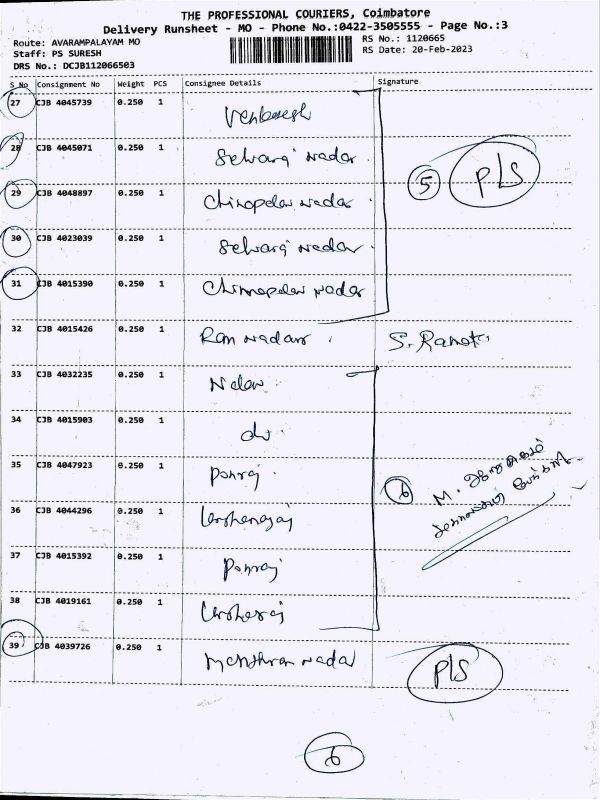 THE PROFESSIONAL COURIERS, Coimbatore
Delivery Runsheet - MO - Phone No.:0422-3505555 - Page No.:3
Route: AVARAMPALAYAM MO
RS No.: 1120665
Staff: PS SURESH
RS Date: 20-Feb-2023
DRS No.: DCJB112066503
S No Consignment No Weight PCS Consignee Details Signature
27 CJB 4045739 0.250 1
28 CJB 4045071 0.250 1 Selvaraj Nadar
5 P/S
29 CJB 4048897 0.250 1 Nadar
30 CJB 4023039 0.250 1 Selvaraj Nadar
31 CJB 4015390 0.250 1 Nadar
32 CJB 4015426 0.250 1 Ram Nadar
33 CJB 4032235 0.250 1
34 CJB 4015903 0.250 1 do
35 CJB 4047923 0.250 1 Ponraj
6 M.
36 CJB 4044296 0.250 1
37 CJB 4015392 0.250 1 Ponraj
38 CJB 4019161 0.250 1
39 CJB 4039726 0.250 1 Nadar P/S
6